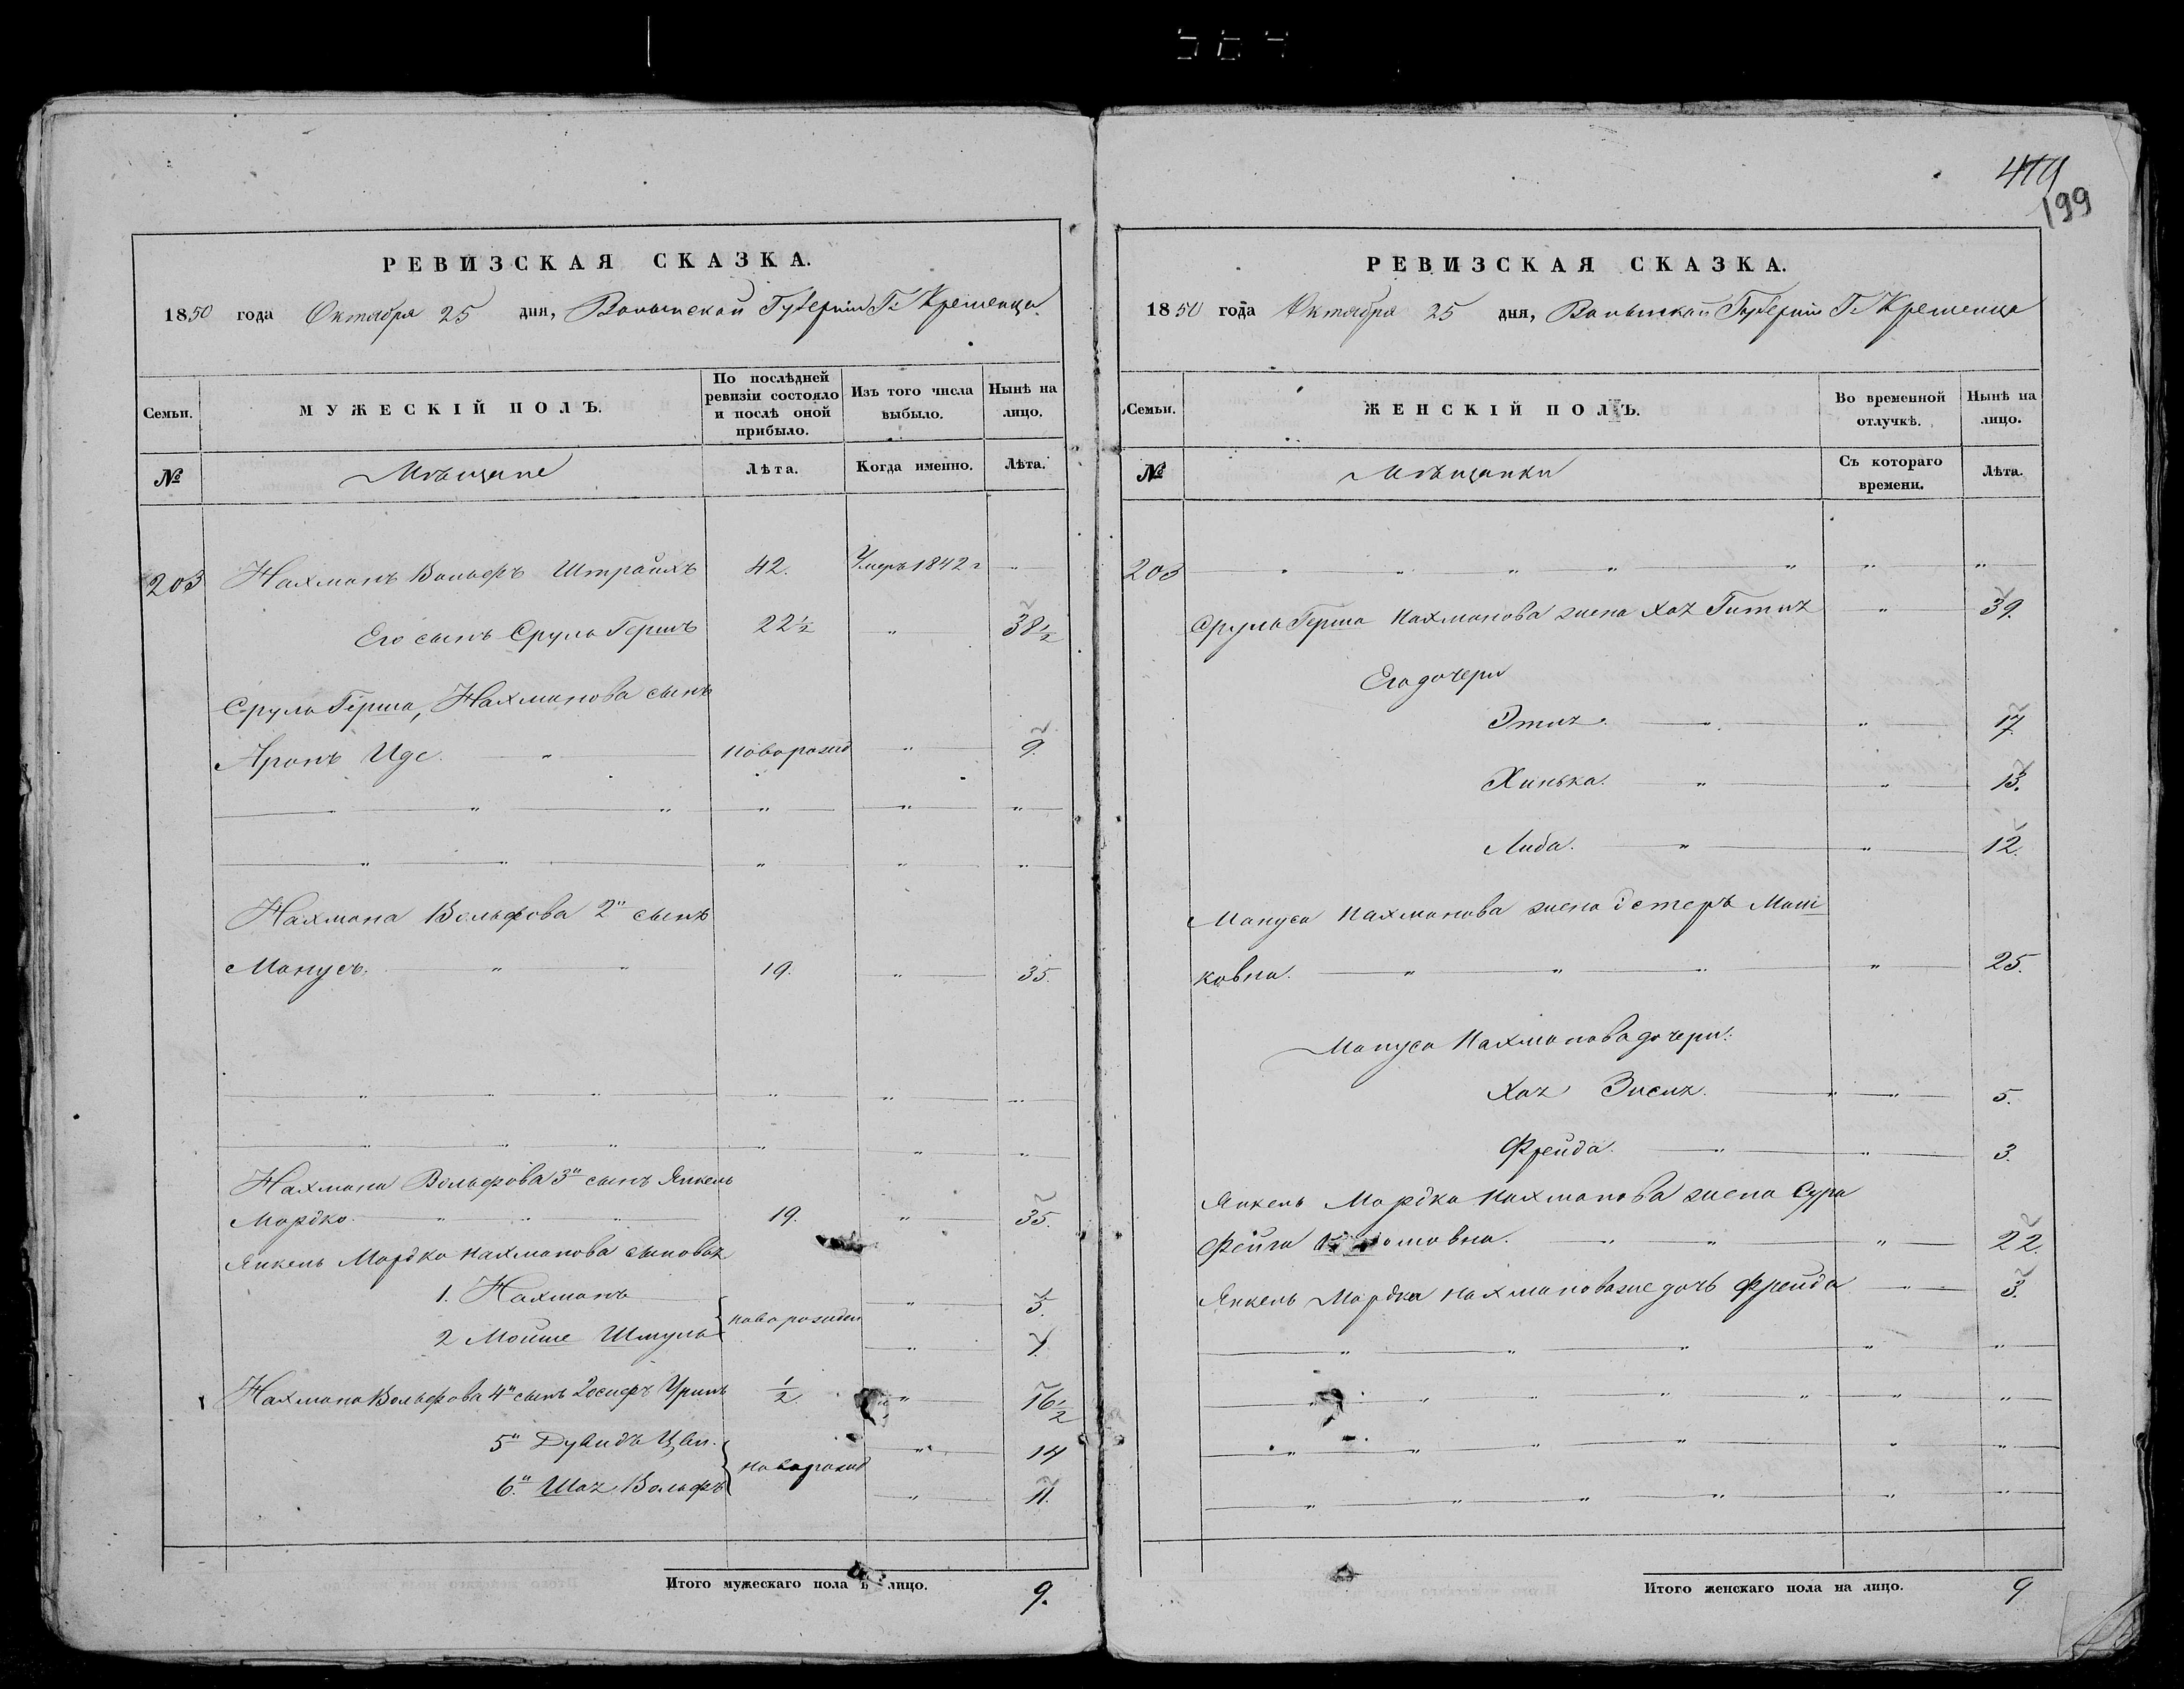 419
199
РЕВИЗСКАЯ СКАЗКА.
1850 года Октября 25 дня, Волынской Губерніи Г. Кременца.
Семьи. МУЖЕСКІЙ ПОЛЪ. По послѣдней ревизіи состояло и послѣ оной прибыло. Изъ того числа выбыло. Нынѣ на лицо.
№ Мѣщане Лѣта. Когда именно. Лѣта.
203 Нахманъ Вольфъ Штрайхъ 42. Умеръ 1842 г "
Его сынъ Сруль Гершъ 22 1/2 " 38 1/2
Сруля Герша, Нахманова сынъ
Аронъ Иде. " новорожд " 9.
" " " " "
" " " " "
Нахмана Вольфова 2й сынъ
Манусъ. " " 19. " 35.
" " " " " "
" " " " " "
Нахмана Вольфова 3й сынъ Янкель
Мордко. " " " 19. " 35.
Янкель Мордка Нахманова сыновья
1. Нахманъ новорожден " 5.
2 Мойше Шмуль " 1.
Нахмана Вольфова 4й сынъ Іосифъ Уринъ 1/2 " 16 1/2
5й Дувидъ Цви. новорожд " 14
6й Шая Вольфъ " 11.
Итого мужескаго пола лицо. 9.
РЕВИЗСКАЯ СКАЗКА.
1850 года Октября 25 дня, Волынской Губерніи Г. Кременца
Семьи. ЖЕНСКІЙ ПОЛЪ. Во временной отлучкѣ. Нынѣ на лицо.
№ Мѣщанки Съ котораго времени. Лѣта.
203 " " " " " " "
Сруль Герша Нахманова жена Хая Гитля " 39.
Его дочери
Этля. " " 17.
Хинька. " " 13.
Либа. " " 12.
Мануса Нахманова жена Эстеръ Мош
ковна. " " " " 25.
Мануса Нахманова дочери:
Хая Зисля. " " 5.
Фрейда. " " 3.
Янкель Мордка Нахманова жена Сура
Фейга " " " 22.
Янкель Мордка Нахманова же дочь Фрейда " 3.
" " " " "
" " " " " "
" " " " " "
" " " " " "
Итого женскаго пола на лицо. 9